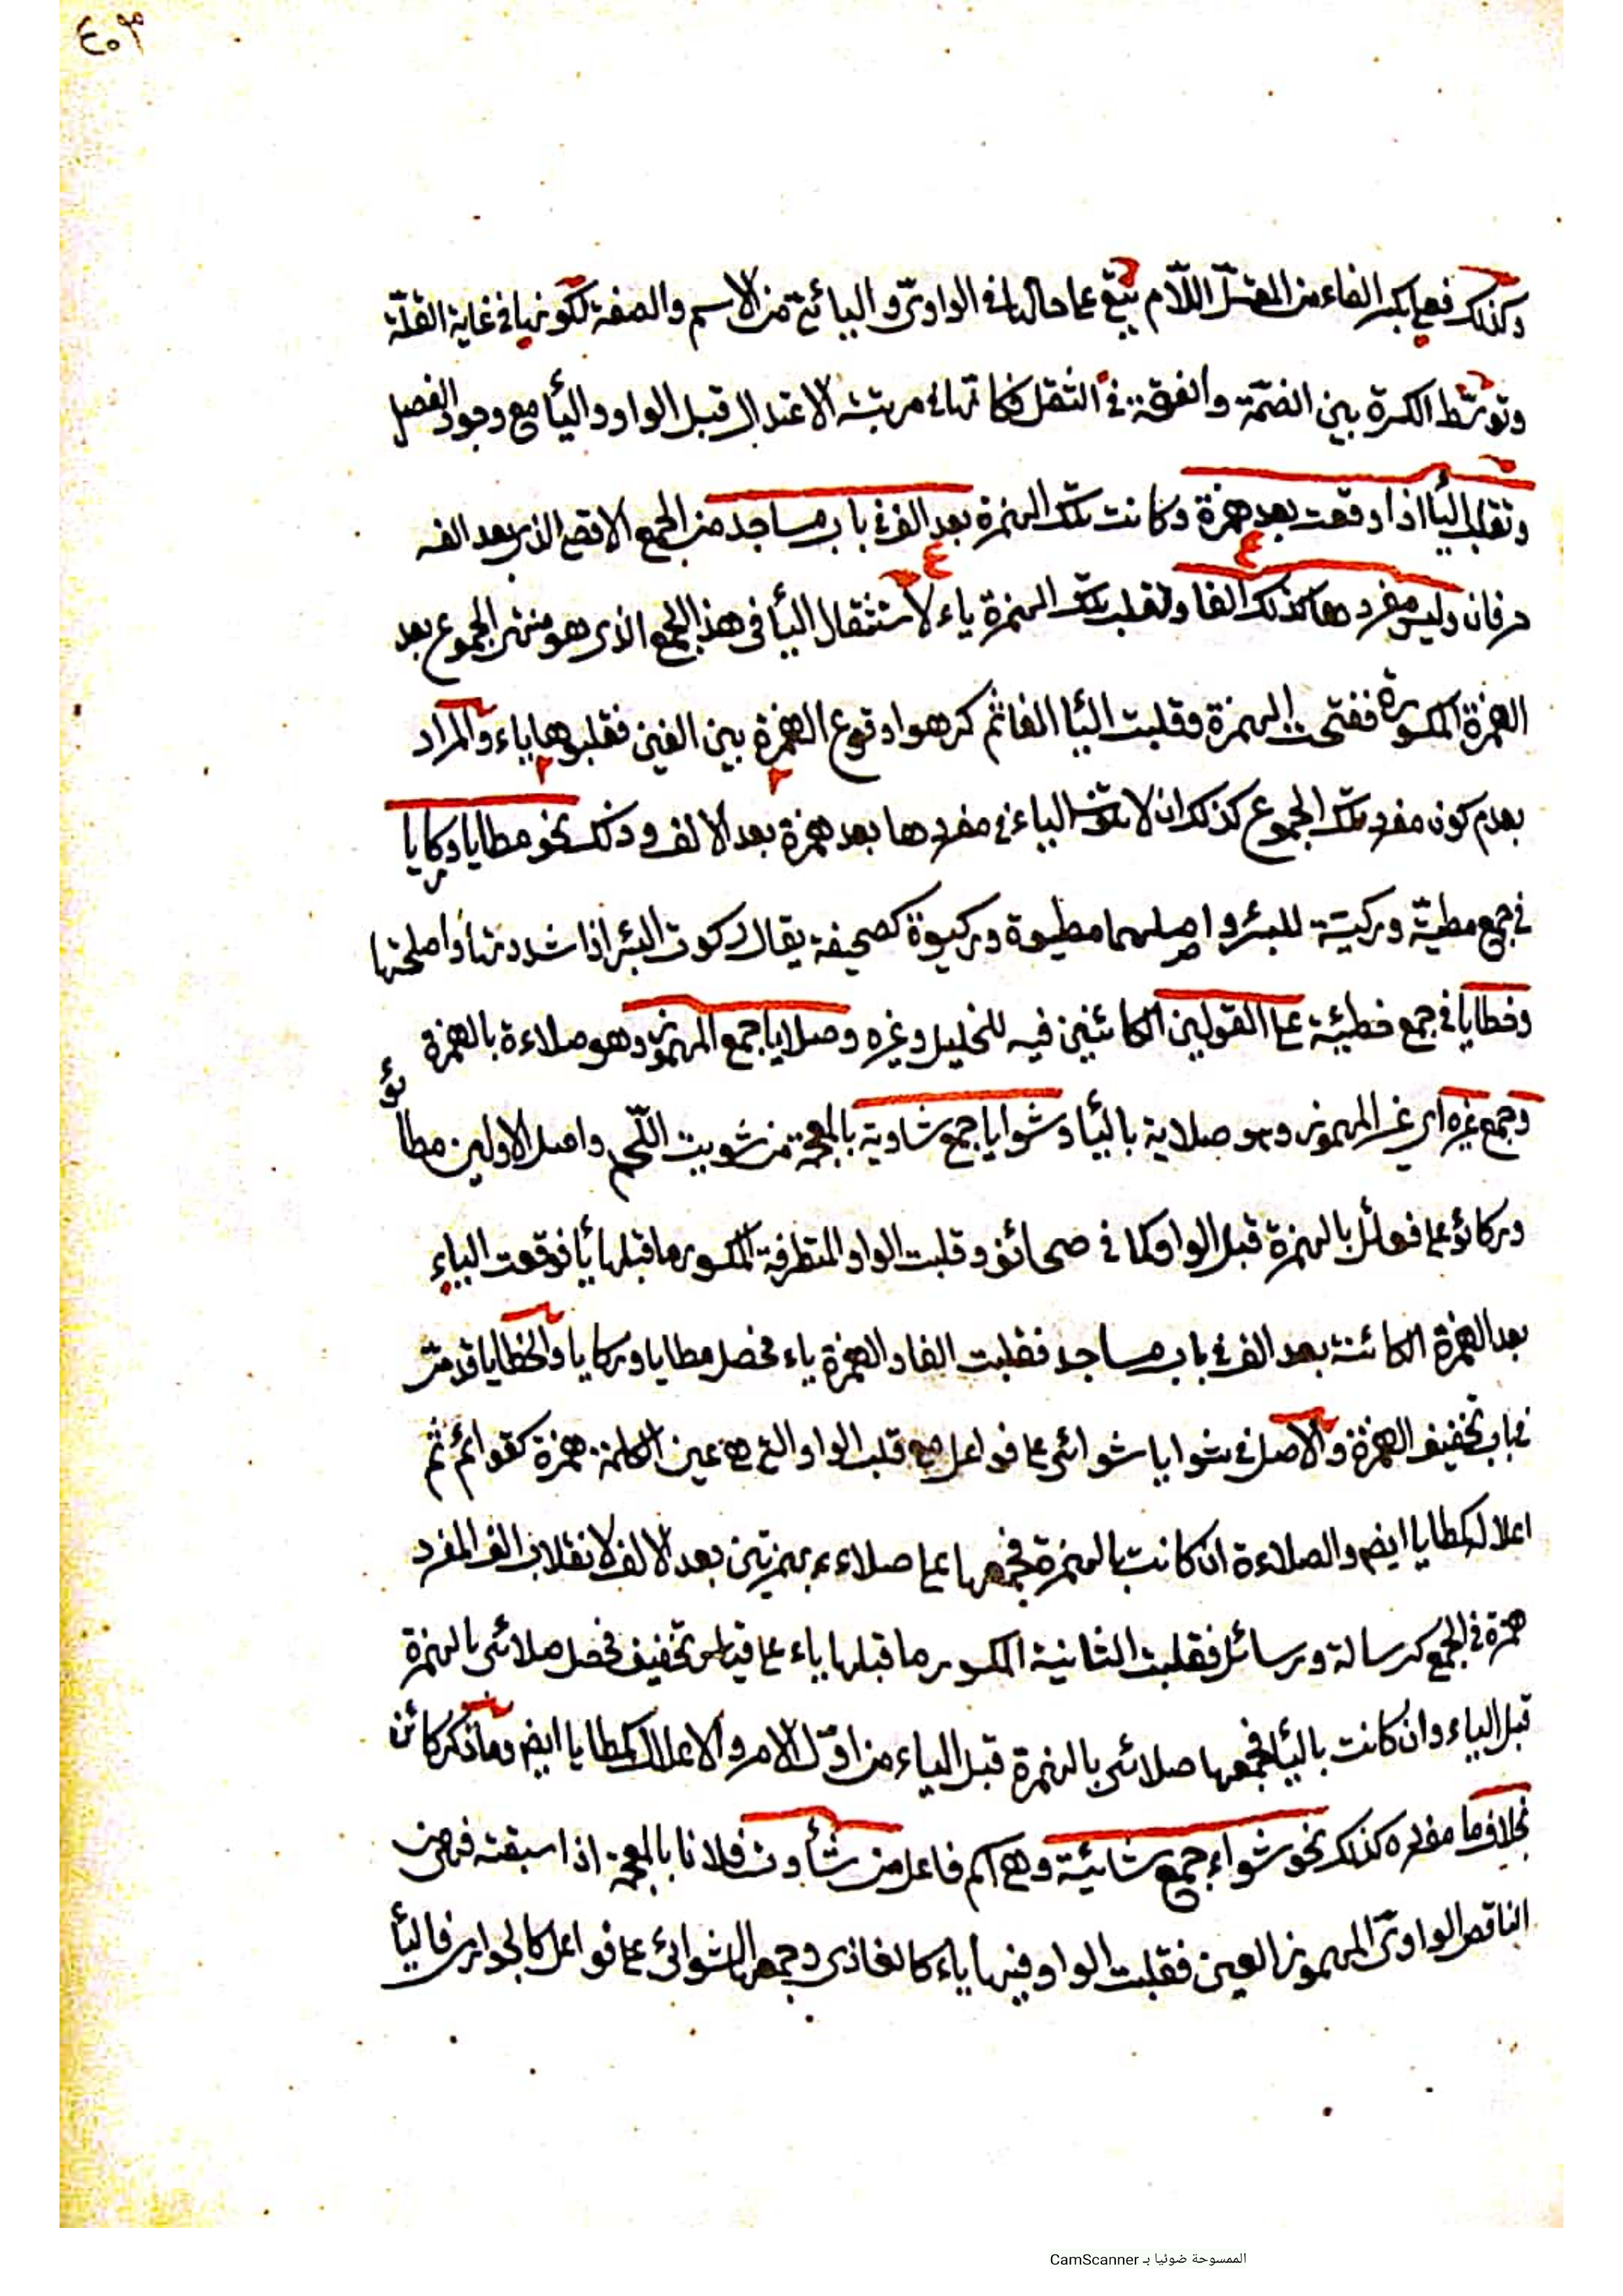 ٤٠٣
وكذلك فعلى بكسر الفاء من المعتل اللّام تبقى على حالها في الواوىّ واليائىّ من الاسم والصفة لكونها في غاية القلّة
وتوسّط الكسرة بين الضمّة والفتحة في الثقل فكانّها في مرتبة الاعتدال قبل الواو والياء مع وجود الفصل
وتقلب الياء اذا وقعت بعد همزة وكانت تلك الهمزة بعد الف في باب مساجد من الجمع الاقصى الذي بعد الفه
حرفان وليس مفردها كذلك الفا وتقلب تلك الهمزة ياء لاستثقال الياء في هذا الجمع الذى هو منتهى الجموع بعد
الهمزة المكسورة ففتحت الهمزة وقلبت الياء الفا ثم كرهوا وقوع الهمزة بين الفين فقلبوها ياء والمراد
بعدم كون مفرد تلك الجموع كذلك ان لا تكون الياء في مفردها بعد همزة بعد الالف وذلك نحو مطايا وركايا
في جمع مطيّة وركيّة للبئر واصلهما مطيوة وركيوة كصحيفة يقال ركوت البئر اذا شددتها واصلحتها
وخطايا في جمع خطيئة على القولين الكائنين فيه للخليل وغيره وصلايا جمع المهموز وهو صلاءة بالهمزة
وجمع غيره اى غير المهموز وهو صلاية بالياء وشوايا جمع شاوية بالمعجمة من شويت اللّحم واصل الاولين مطائو
وركائو على فعائل بالهمزة قبل الواو كما في صحائف وقلبت الواو المتطرفة المكسور ما قبلها ياء فوقعت الياء
بعد الهمزة الكائنة بعد الف في باب مساجد فقلبت الفا والهمزة ياء فحصل مطايا وركايا والخطايا قد مرّ
في باب تخفيف الهمزة والاصل في شوايا شوائى على فواعل قلب الواو التي هي عين الكلمة همزة كقوائم ثم
اعلال كمطايا ايضم والصلاءة ان كانت بالهمزة فجمعها على صلاءء بهمزتين بعد الالف لانقلاب الف المفرد
همزة في الجمع كرسالة ورسائل فقلبت الثانية المكسور ما قبلها ياء على قياس تخفيف فحصل صلائى بالهمزة
قبل الياء وان كانت بالياء فجمعها صلائى بالهمزة قبل الياء من اوّل الامر والاعلال كمطايا ايضم وما ذكر كائن
بخلاف ما مفرده كذلك نحو شواء جمع شائية وهي اسم فاعل من شأوت فلانا بالمعجمة اذا سبقته فهى من
الناقص الواوىّ المهموز العين فقلبت الواو فيها ياء كالغازى وجمعها الشوائى على فواعل كالجوارى فالياء
الممسوحة ضوئيا بـ CamScanner